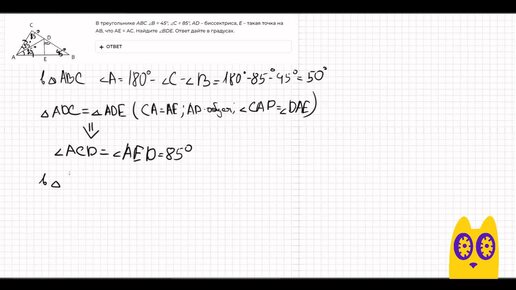 В треугольнике ABC ∠B = 45°, ∠C = 85°, AD - биссектриса, E - такая точка на
AB, что AE = AC. Найдите ∠BDE. Ответ дайте в градусах.
+ ОТВЕТ
C
D
A
E
B
в △ ABC ∠A = 180° - ∠C - ∠B = 180° - 85° - 45° = 50°
△ ADC = △ ADE ( CA = AE ; AD - общая ; ∠CAD = ∠DAE )
⇓
∠ACD = ∠AED = 85°
в △